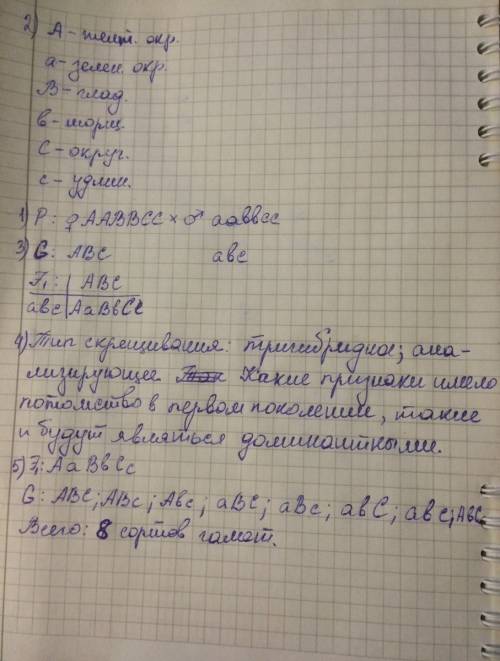 2) А - желт. окр.
а - зелен. окр.
В - глад.
в - морщ.
С - округ.
с - удлин.
1) Р: ♀ ААВВСС × ♂ ааввсс
3) G: АВС авс
F₁: | АВС
авс | АаВвСс
4) Тип скрещивания: тригибридное; ана-
лизирующее. Какие признаки имело
потомство в первом поколении, такие
и будут являться доминантными.
5) F₁: АаВвСс
G: АВС; АВс; Авс; аВС; аВс; авС; авс; АвС
Всего: 8 сортов гамет.